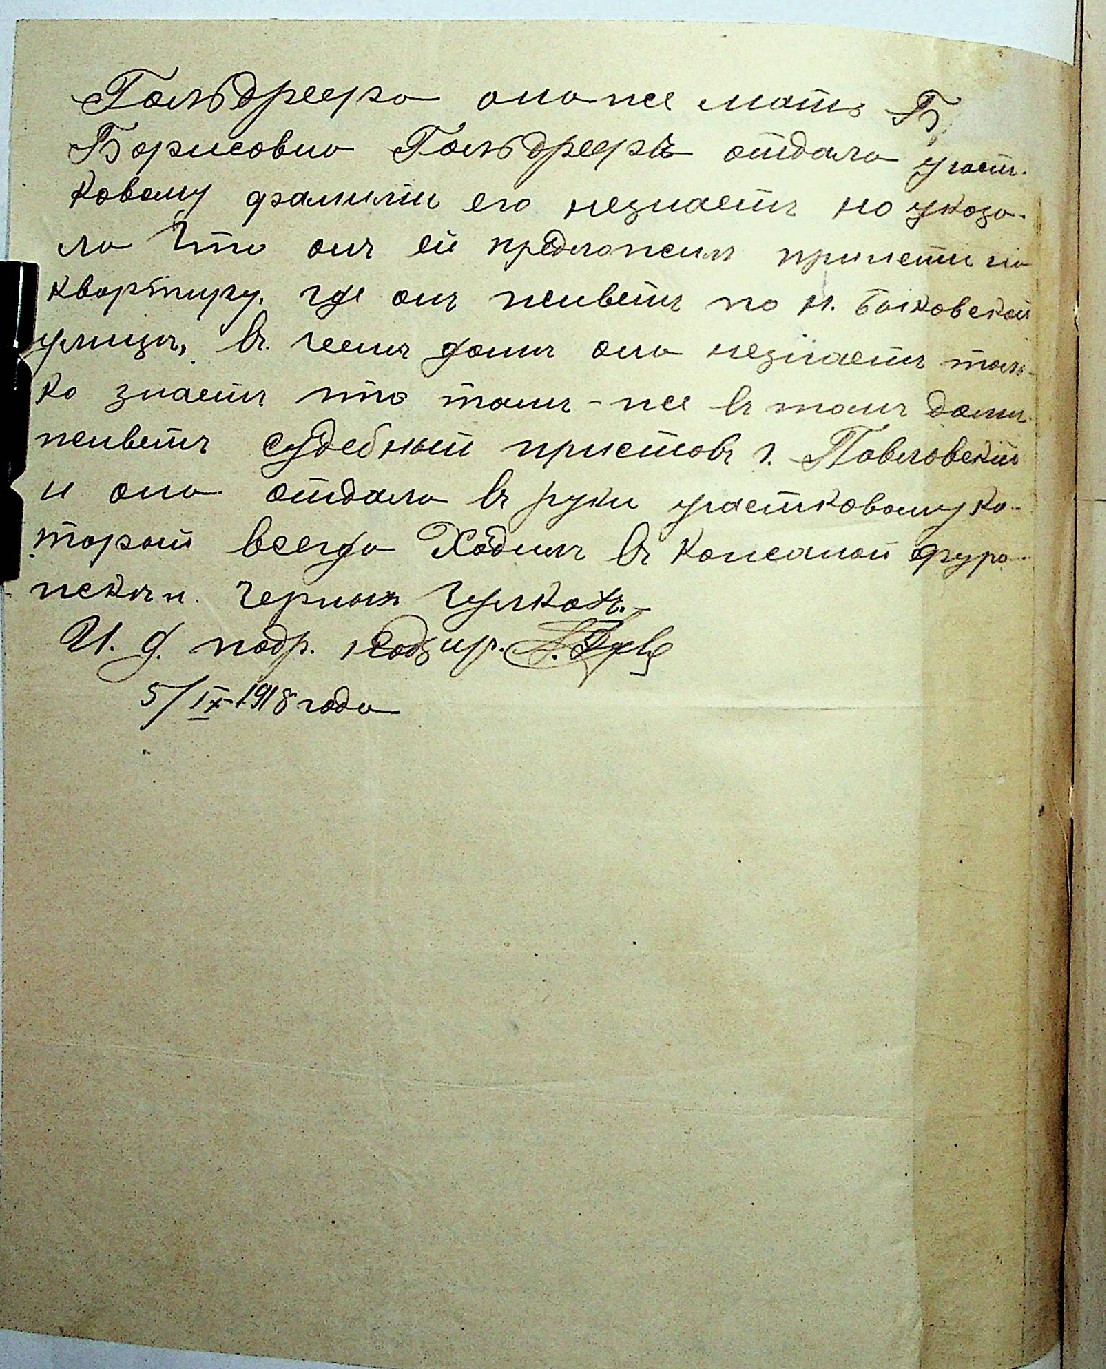 Гольдреера она же мать Б.
Борисовна Гольдрееръ отдала участ-
ковому фамилии его незнаетъ но указа-
ла Что онъ ей предложилъ принести на
квартиру. где онъ живетъ по н. Быковской
улицъ, въ чемъ домъ она незнаетъ толь-
ко знаетъ что тамъ-же въ томъ доми
живетъ судебный приставъ г. Павловский
и она отдала въ руки участковому ко-
торый всегда Ходилъ въ кожаной фура-
жкъ и. черныхъ Чулкахъ.
И. д. подр.
5/IX-1918 года